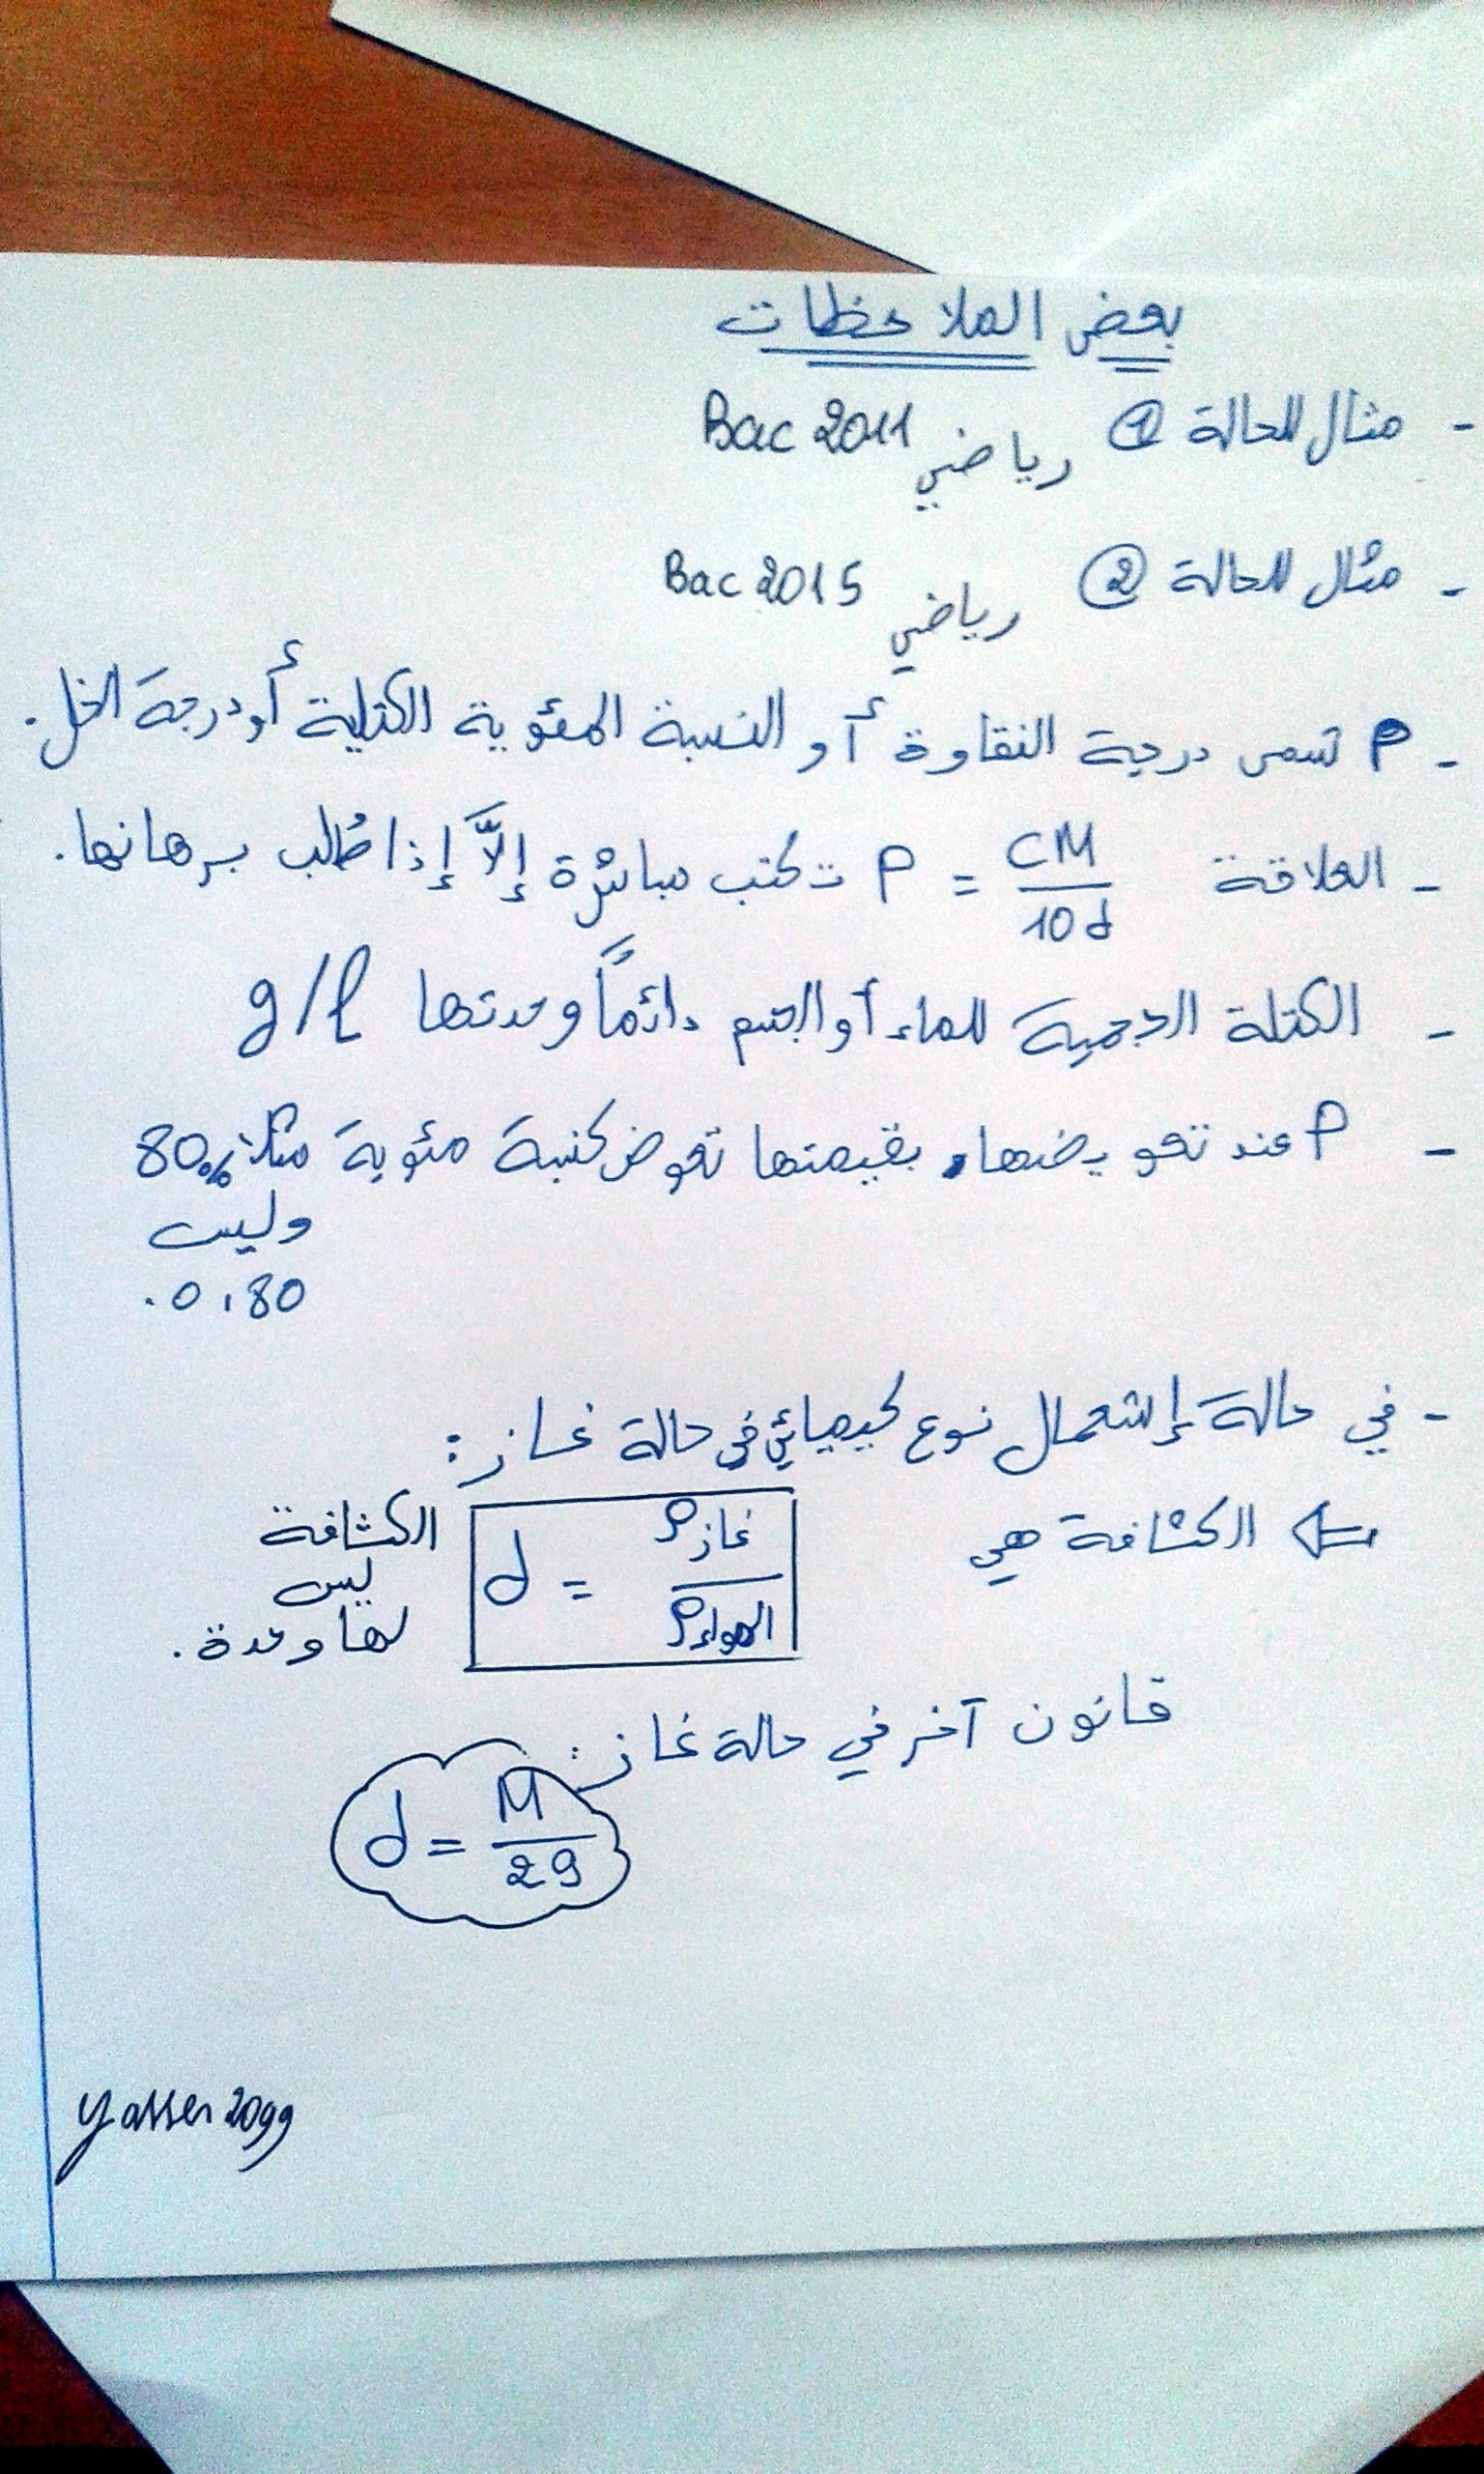 بعض الملاحظات
- مثال للحالة ① رياضي Bac 2011
- مثال للحالة ② رياضي Bac 2015
- P تسمى درجة النقاوة أو النسبة المئوية الكتلية أو درجة الخل.
- العلاقة P = CM/10d تكتب مباشرة إلاَّ إذا طُلب برهانها.
- الكتلة الحجمية للماء أو الجسم دائمًا وحدتها g/l
- P عند تعويضها بقيمتها تعوض كنسبة مئوية مثلا: 80%
وليس
0,80.
- في حالة إستعمال نوع كيميائي في حالة غاز:
⇐ الكثافة هي d = ρ غاز / ρ الهواء الكثافة
ليس
لها وحدة.
قانون آخر في حالة غاز:
d = M/29
Yasser 2099